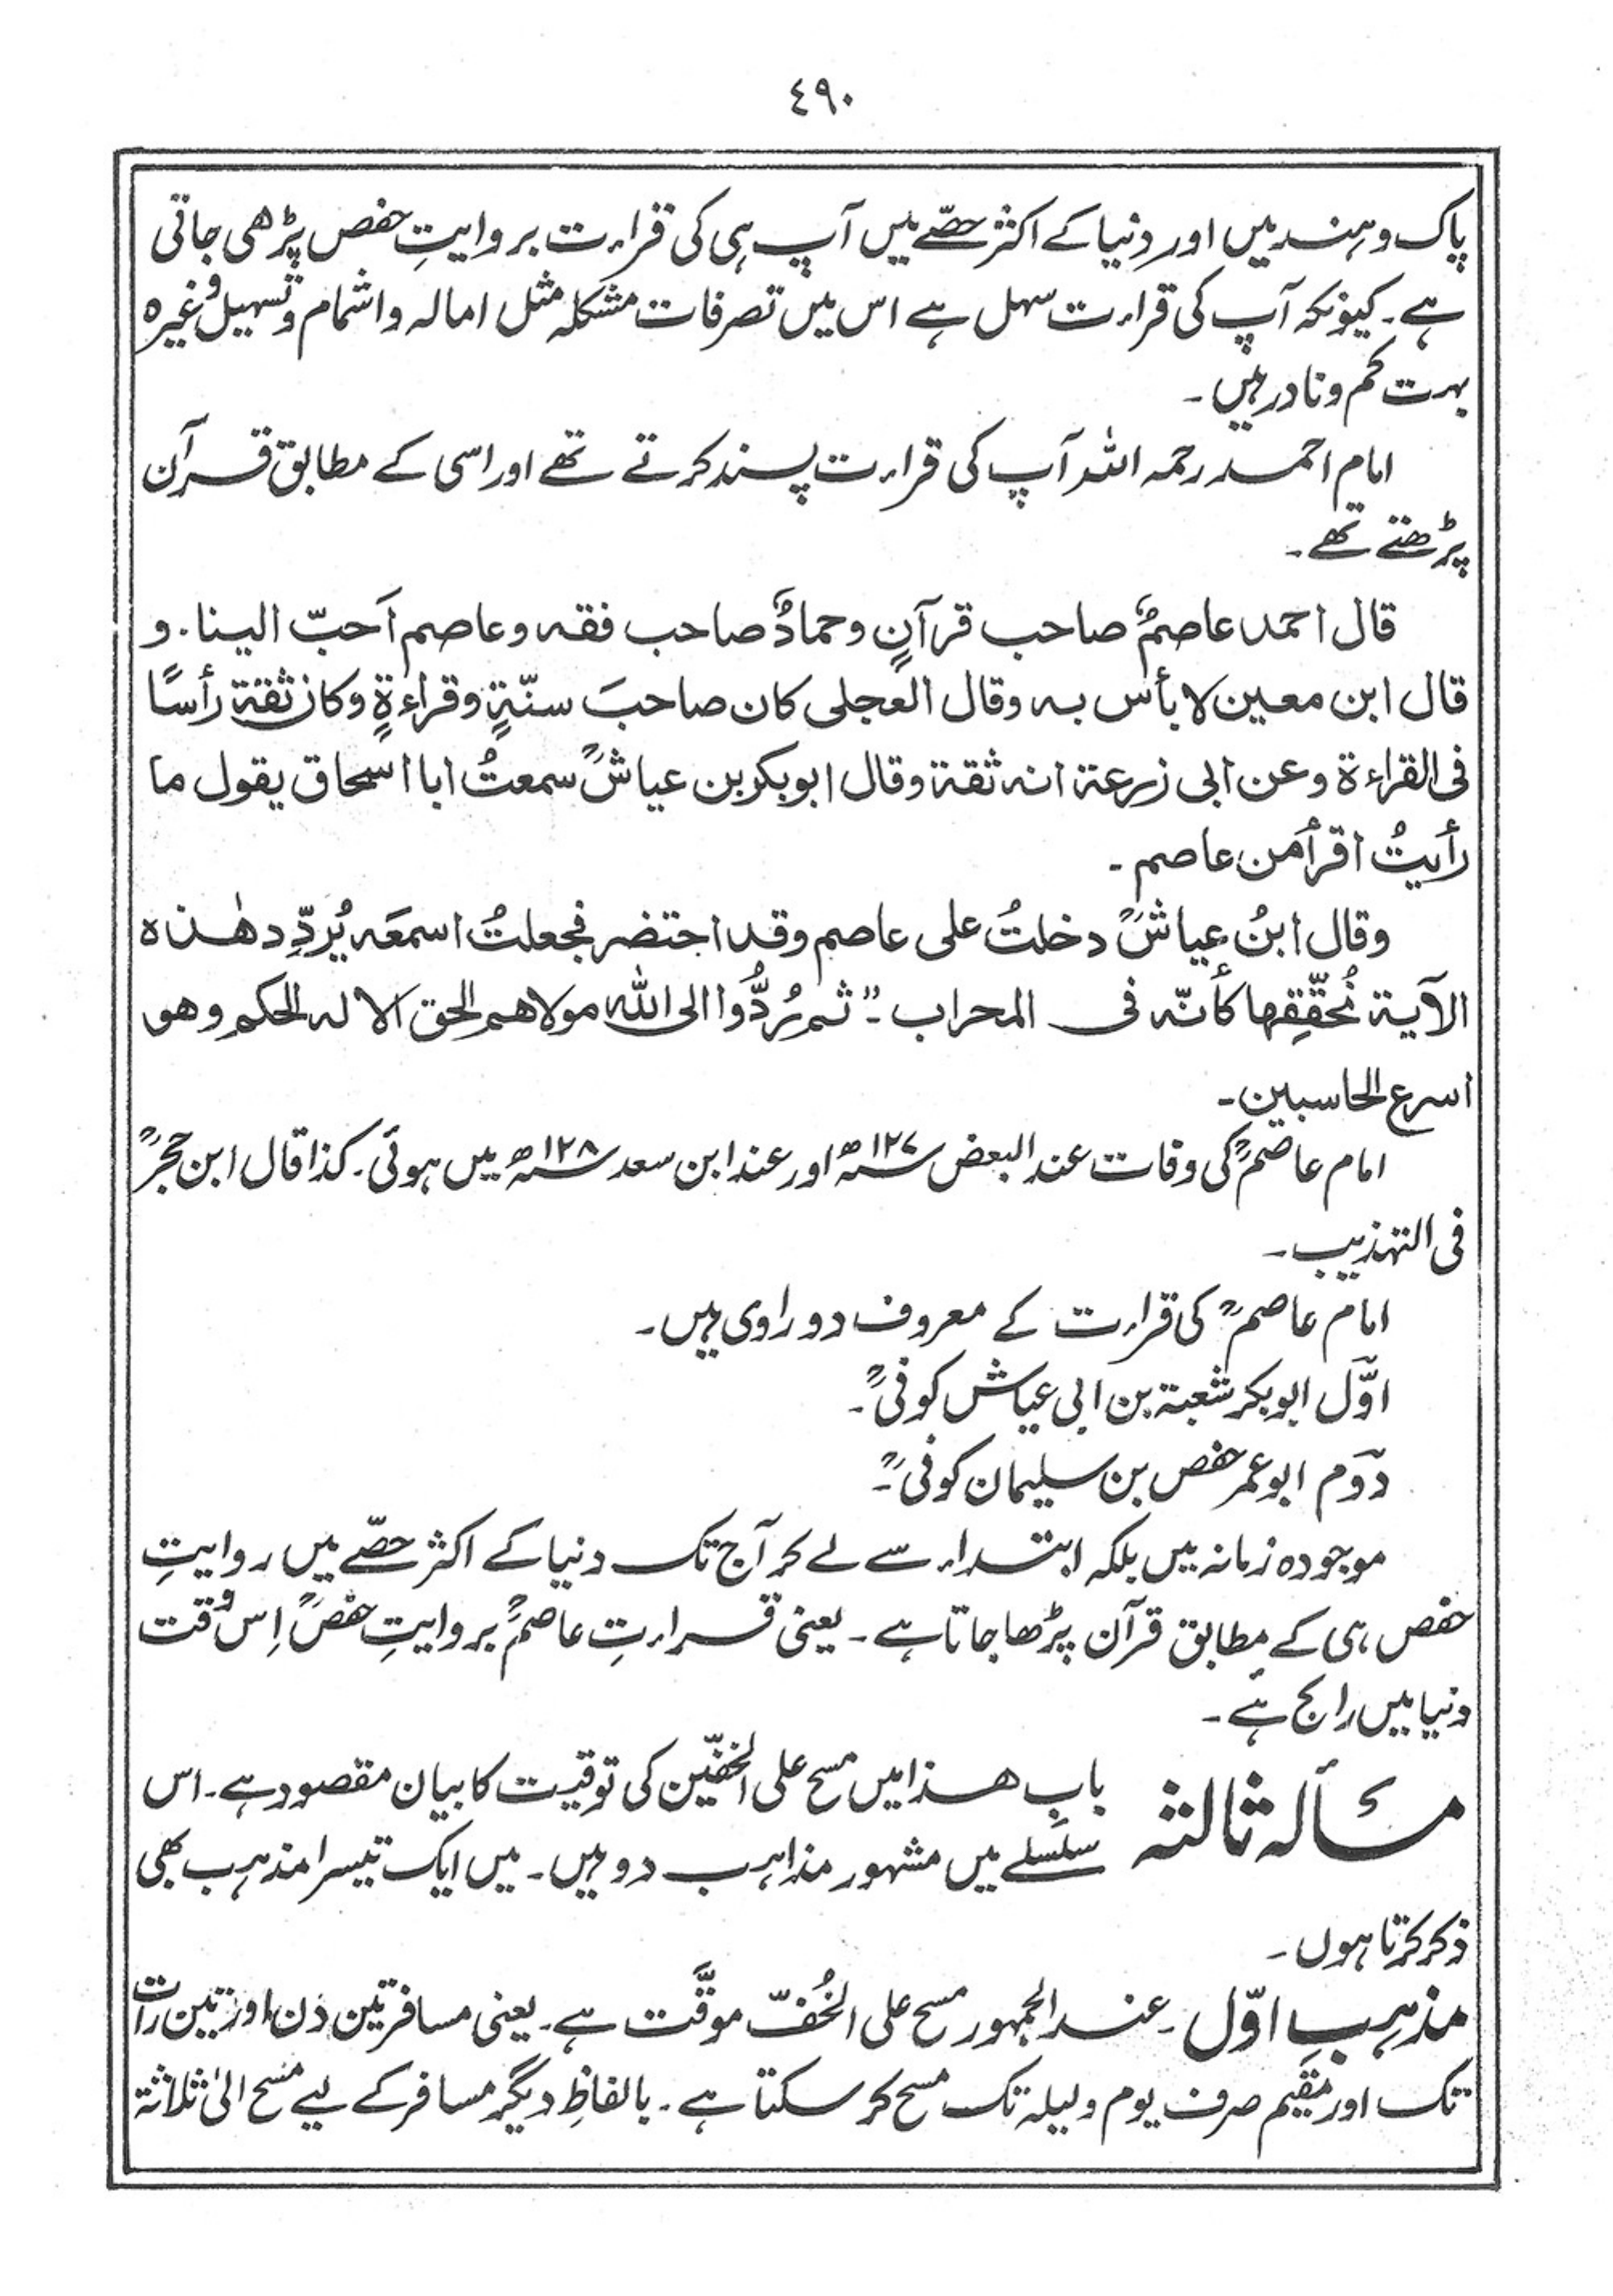 ٤٩٠
پاک وہند میں اور دنیا کے اکثر حصّے میں آپ ہی کی قراءت بروایتِ حفص پڑھی جاتی
ہے۔ کیونکہ آپ کی قراءت سہل ہے اس میں تصرفات مشکلہ مثل امالہ و اشمام و تسہیل وغیرہ
بہت کم و نادر ہیں۔
امام احمد رحمہ اللہ آپ کی قراءت پسند کرتے تھے اور اسی کے مطابق قرآن
پڑھتے تھے۔
قال احمد عاصمٌ صاحب قرآنٍ وحمادٌ صاحب فقہ وعاصم اَحبّ الینا۔ و
قال ابن معین لا بأس بہ وقال العجلی کان صاحبَ سنّةٍ وقراءةٍ وکان ثقة رأسًا
فی القراءة وعن ابی زرعة انہ ثقة وقال ابوبکر بن عیاشؒ سمعتُ ابا اسحاق یقول ما
رأیتُ اقرأ من عاصم۔
وقال ابنُ عیاشؒ دخلتُ علی عاصم وقد احتضر فجعلتُ اسمعَہ یُردِّد ھٰذہ
الآیة نُحقِّقھا کأنّہ فی المحراب۔ ”ثم رُدُّوا الی اللہ مولاھم الحق الا لہ الحکم وھو
اسرع الحاسبین۔
امام عاصمؒ کی وفات عند البعض ۱۲۷ھ اور عند ابن سعد ۱۲۸ھ میں ہوئی۔ کذا قال ابن حجرؒ
فی التہذیب۔
امام عاصمؒ کی قراءت کے معروف دو راوی ہیں۔
اوّل ابوبکر شعبة بن ابی عیاش کوفیؒ۔
دوم ابوعمر حفص بن سلیمان کوفیؒ۔
موجودہ زمانہ میں بلکہ ابتداء سے لے کر آج تک دنیا کے اکثر حصّے میں روایتِ
حفص ہی کے مطابق قرآن پڑھا جاتا ہے۔ یعنی قراءتِ عاصمؒ بروایتِ حفصؒ اِس وقت
دنیا میں رائج ہے۔
مسألہ ثالثہ بابِ ھذا میں مسح علی الخفّین کی توقیت کا بیان مقصود ہے۔ اس
سلسلے میں مشہور مذاہب دو ہیں۔ میں ایک تیسرا مذہب بھی
ذکر کرتا ہوں۔
مذہبِ اوّل۔ عند الجمہور مسح علی الخُفّ موقَّت ہے۔ یعنی مسافر تین دن اور تین رات
تک اور مقیم صرف یوم ولیلہ تک مسح کر سکتا ہے۔ بالفاظِ دیگر مسافر کے لیے مسح الیٰ ثلاثة